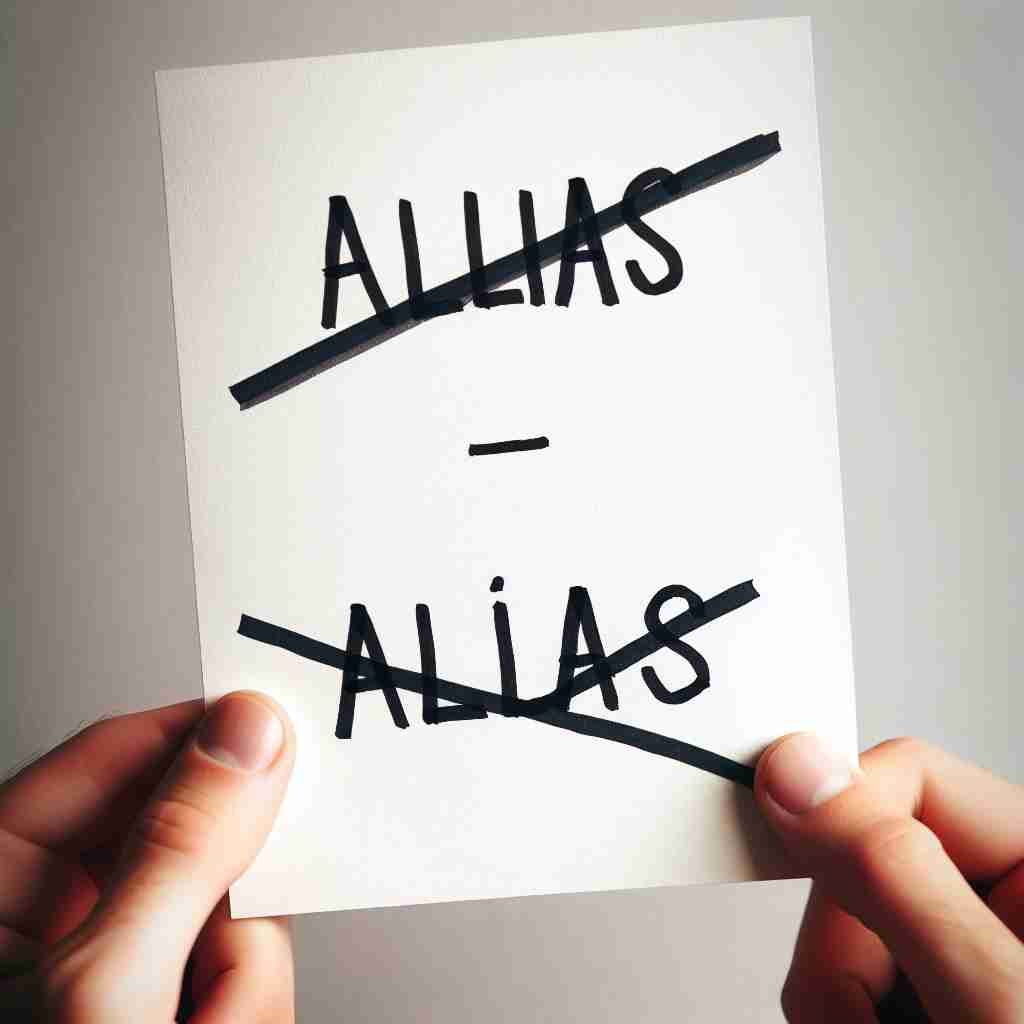 ALLIAS
–
ALiAS